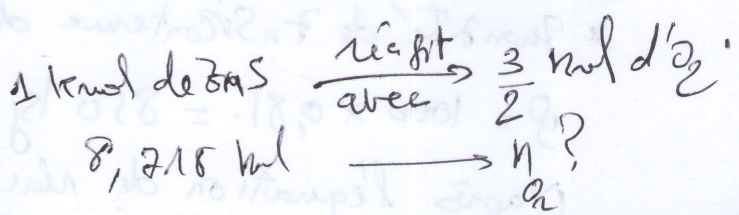 1 kmol de ZnS réagit avec → 3/2 kmol d'O₂.
8,718 kmol → n_O₂ ?